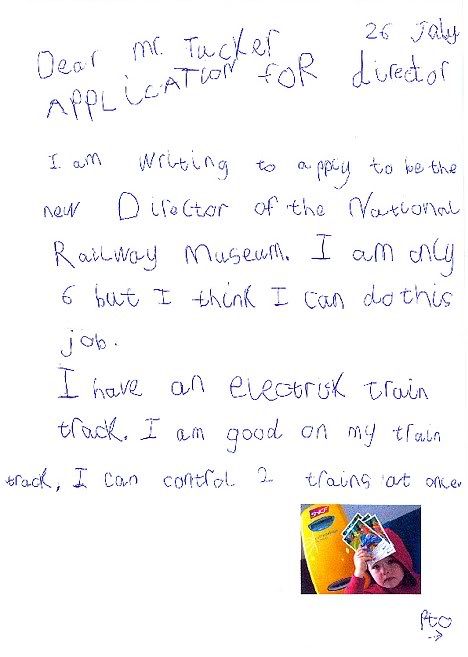 26 July
Dear Mr. Tucker
APPLICATION FOR director
I am writing to apply to be the
new Director of the National
Railway Museum. I am only
6 but I think I can do this
job.
I have an electrisk train
track. I am good on my train
track, I can control 2 trains at once.
Pto